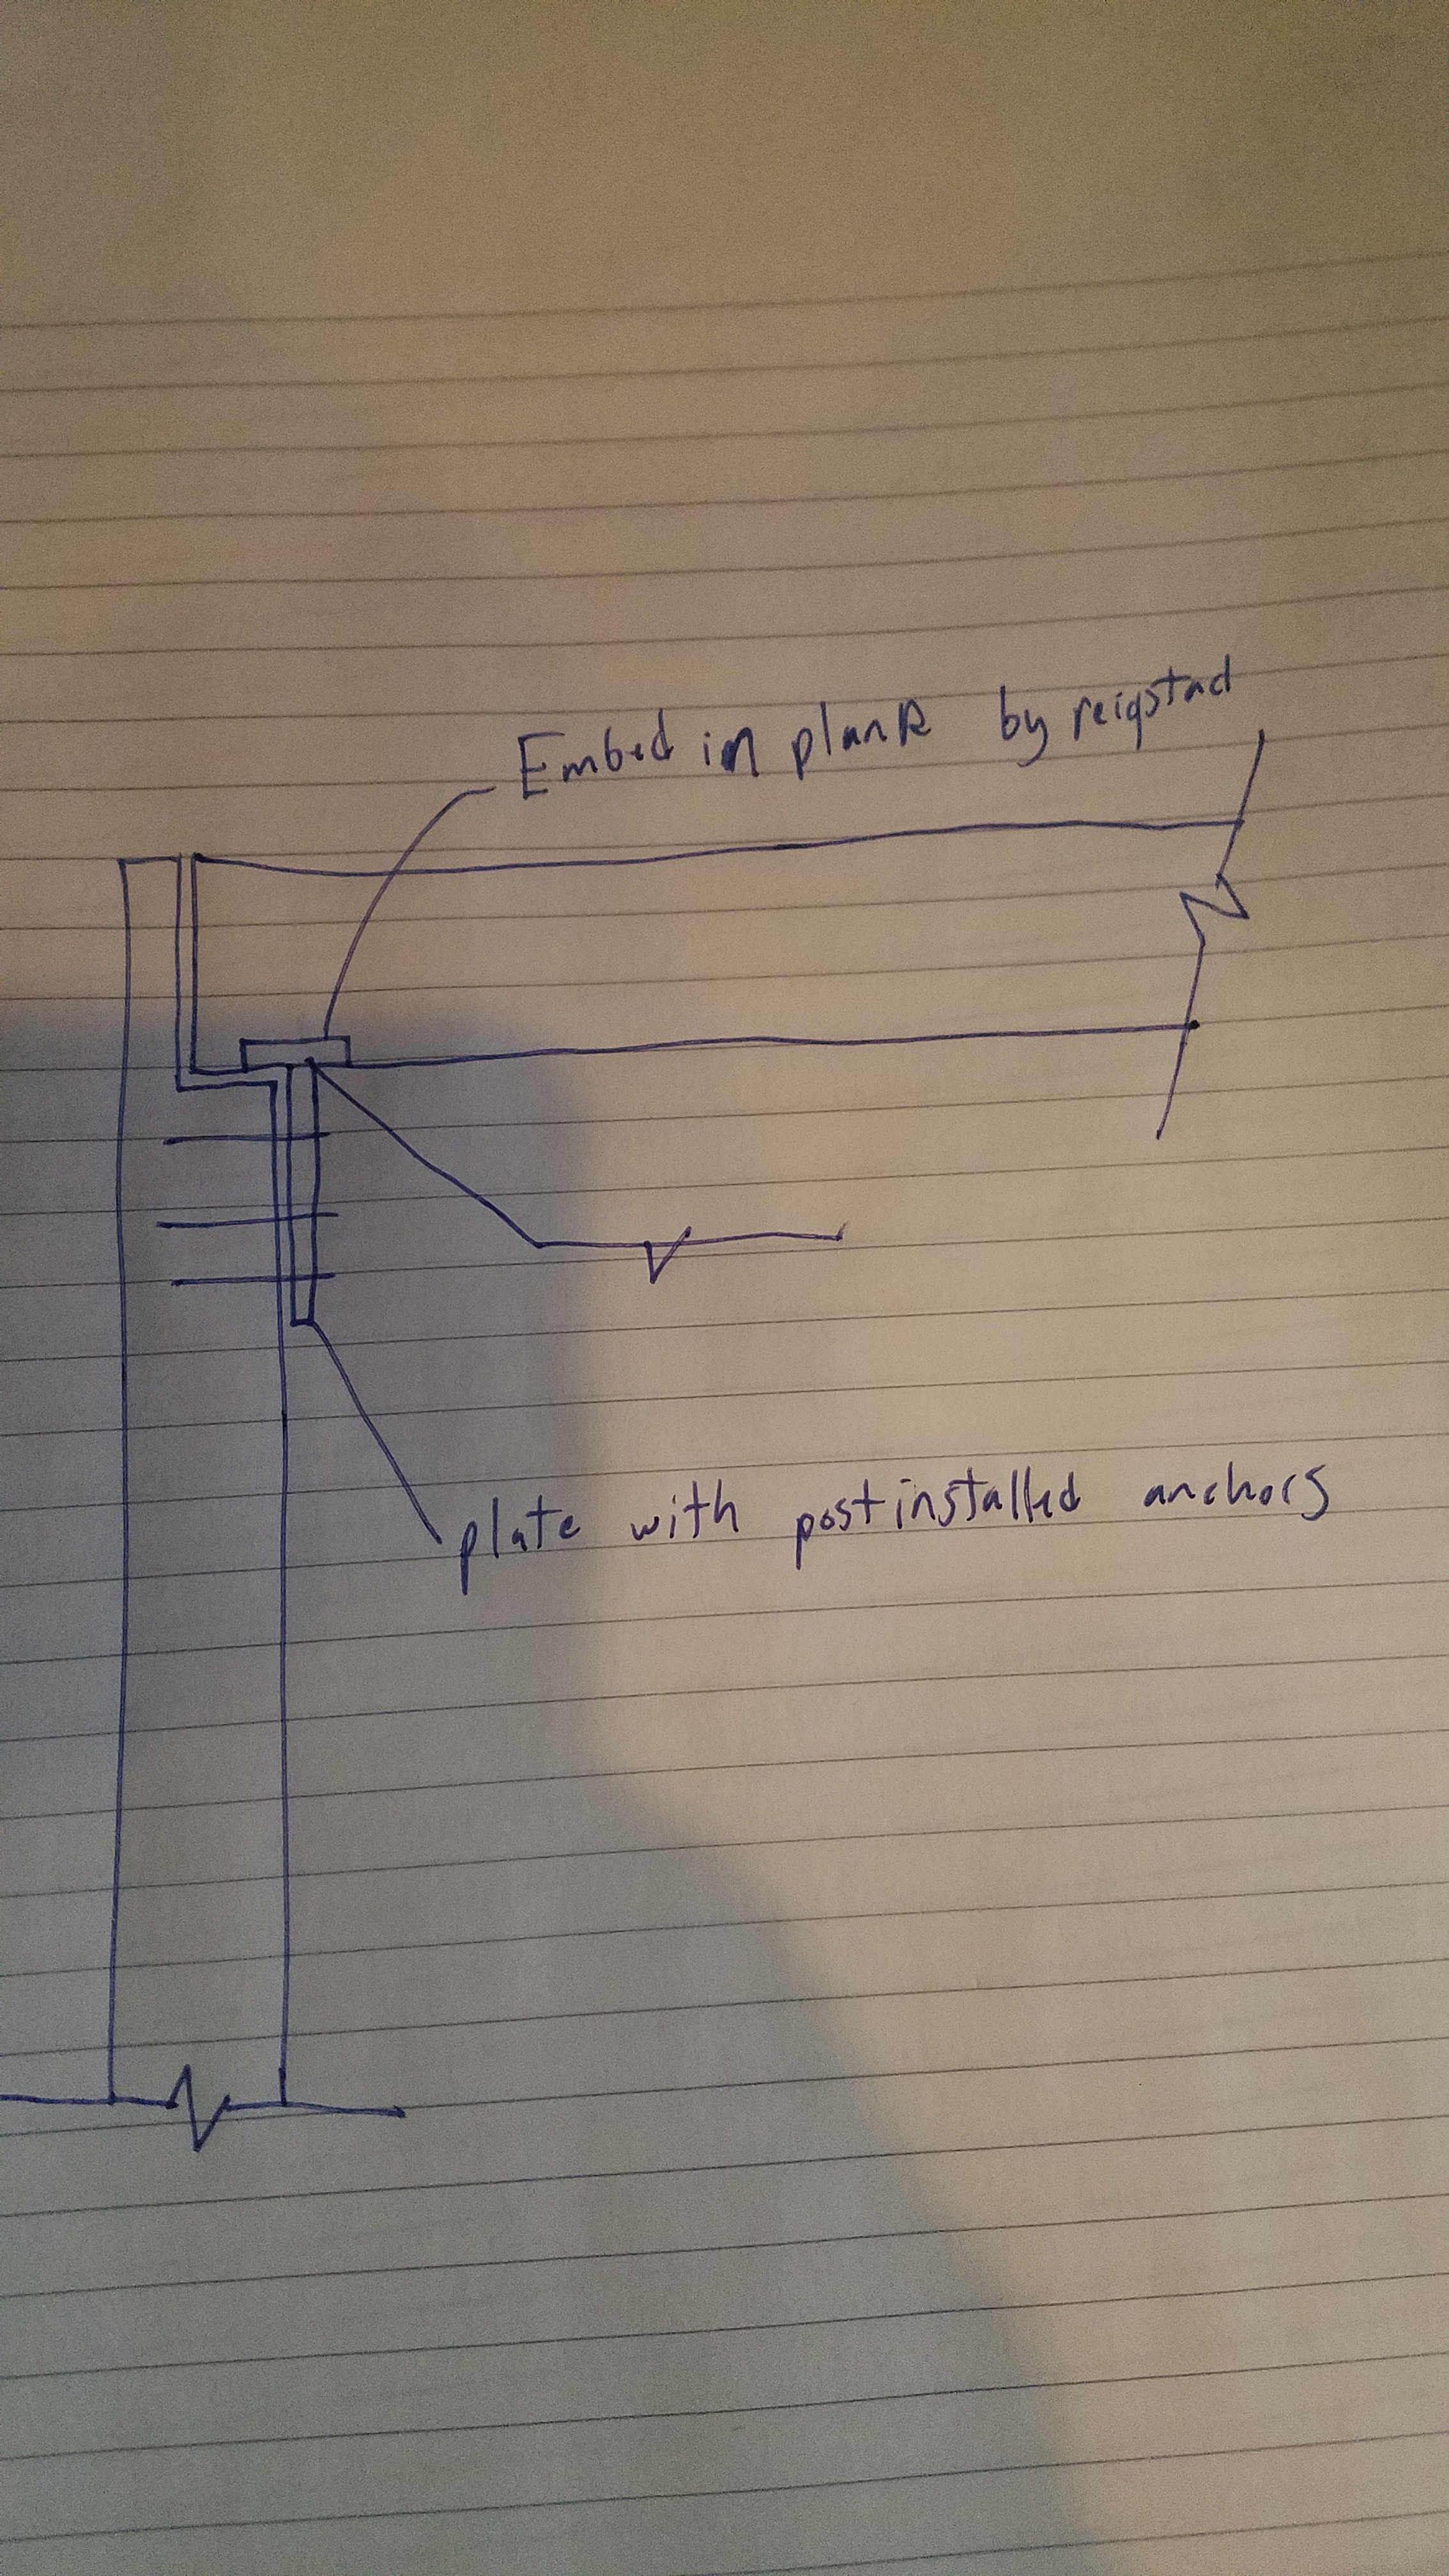 Embed in plank by reigstad
plate with postinstalled anchors